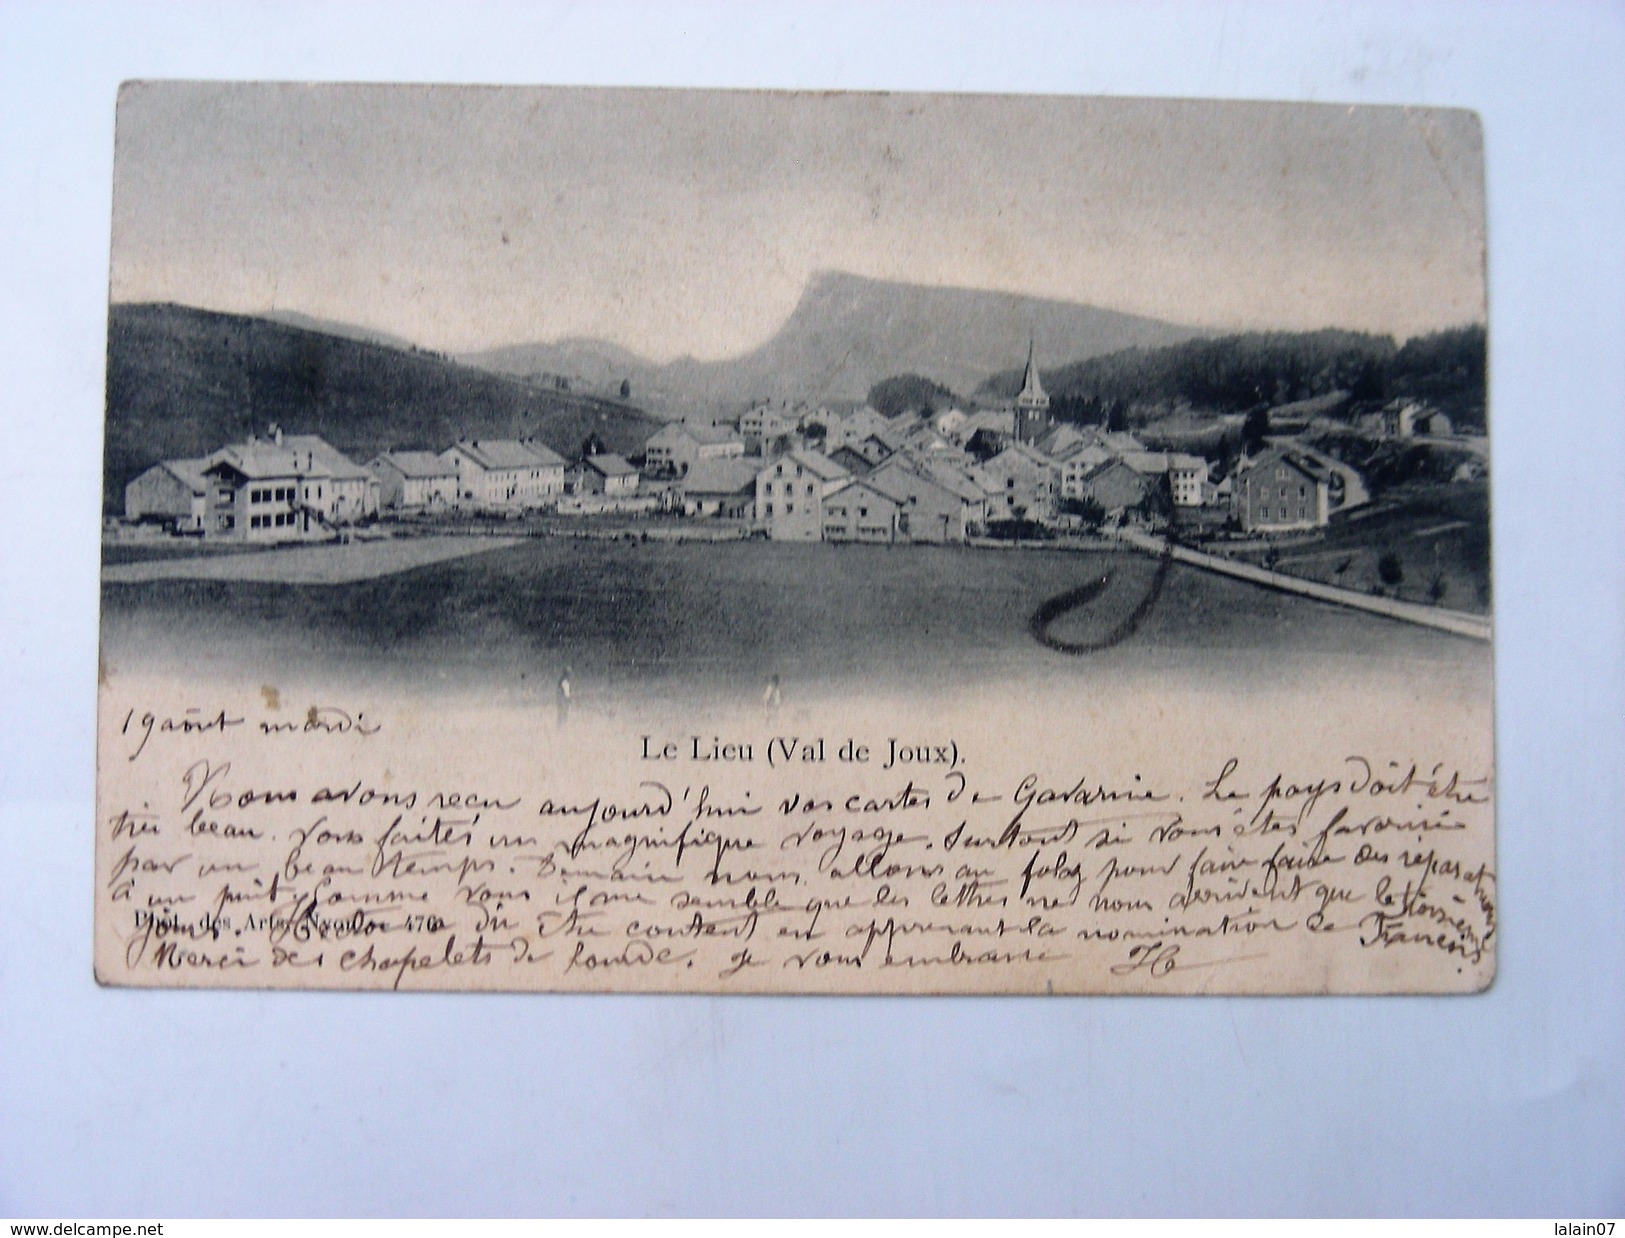 19 août mardi
Le Lieu (Val de Joux).
Nous avons reçu aujourd'hui vos cartes de Gavarnie. Le pays doit être
très beau. Vous faites un magnifique voyage. Surtout si vous êtes favorisé
par un beau temps. Demain nous allons au pour faire faire des réparations
à un puits. Comme vous il me semble que les lettres ne nous arrivent que le troisième
jour. du être content en apprenant la nomination de François.
Phot. des Arts, Nyon No 476
Merci des chapelets de Lourde. Je vous embrasse H
delcampe.net
lalain07